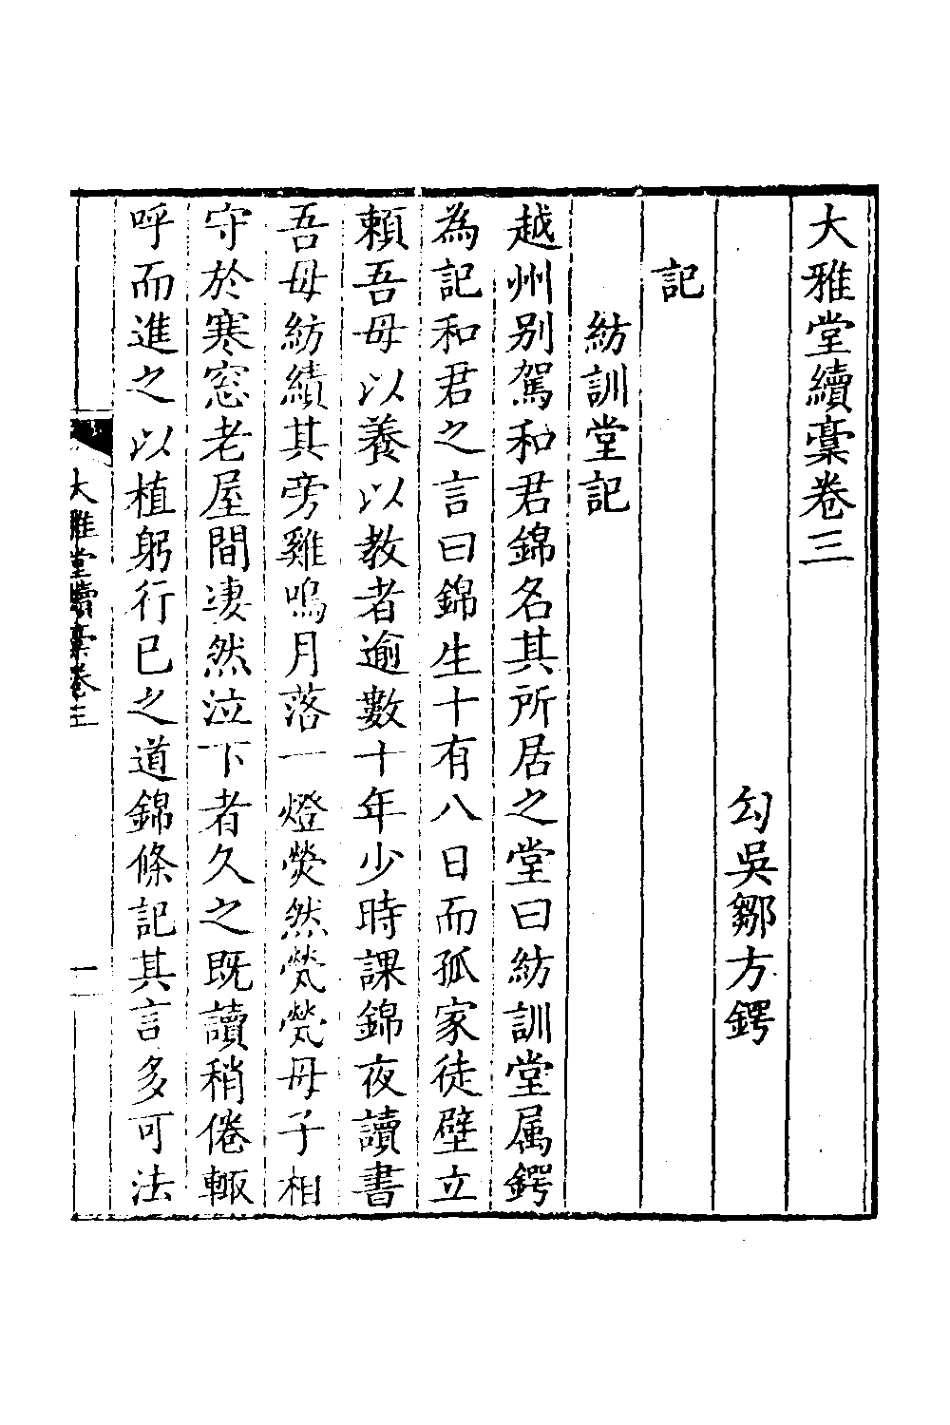 大雅堂續稾卷三
勾吳鄒方鍔
記
紡訓堂記
越州别駕和君錦名其所居之堂曰紡訓堂属鍔
為記和君之言曰錦生十有八日而孤家徒壁立
頼吾母以養以教者逾數十年少時課錦夜讀書
吾母紡績其旁雞鳴月落一燈熒然煢煢母子相
守於寒窓老屋間凄然泣下者久之既讀稍倦輙
呼而進之以植躬行已之道錦條記其言多可法
大雅堂續稾卷三
一